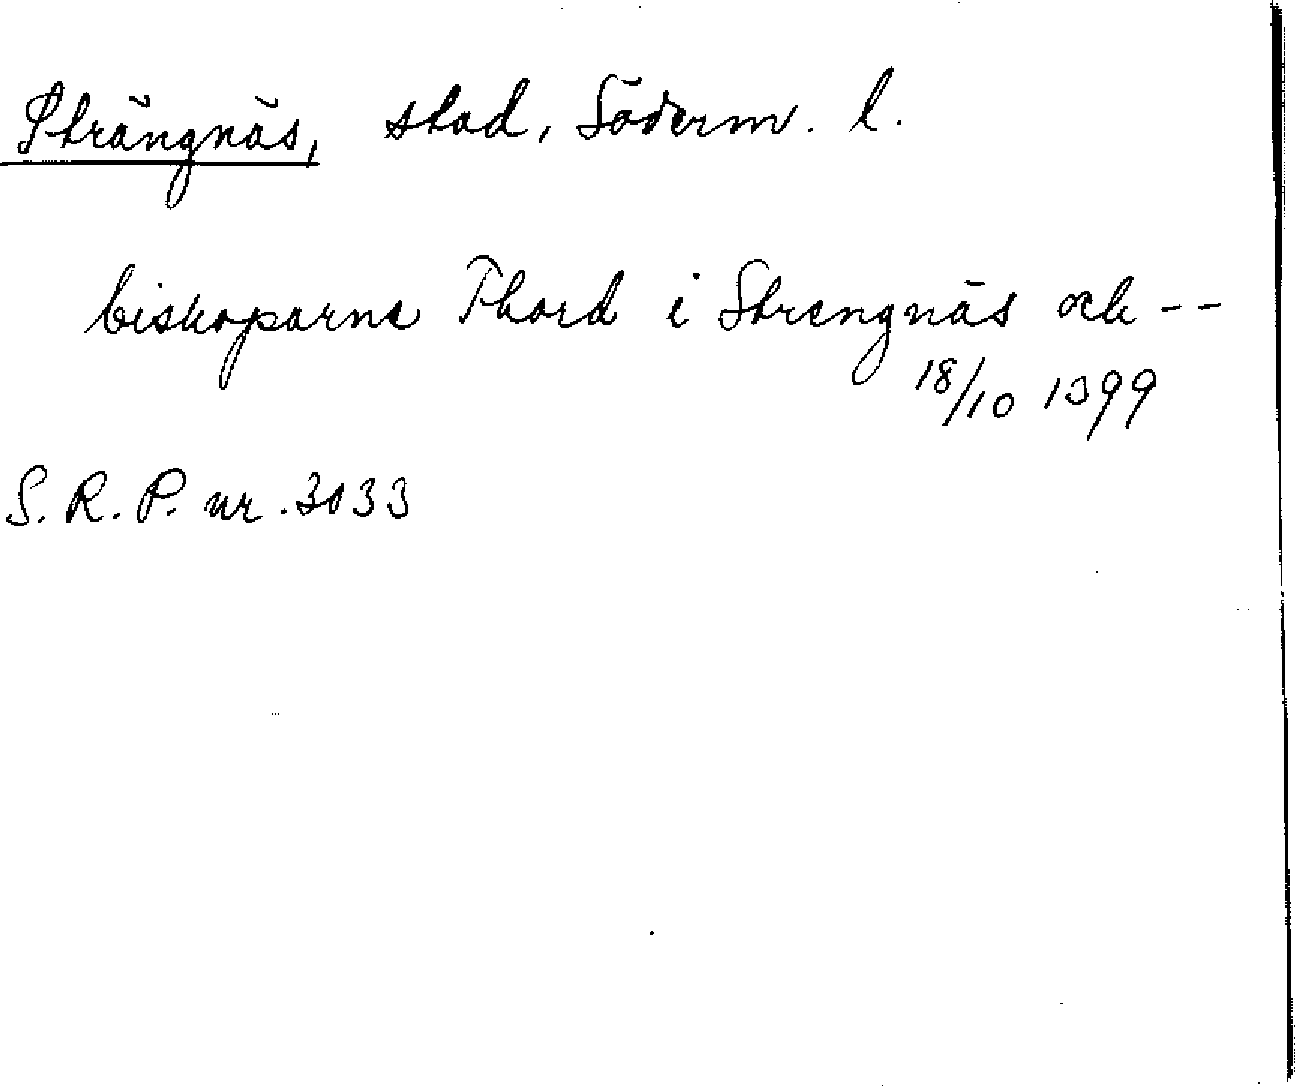 Strängnäs, stad, Söderm. l.
biskoparne Thord i Strengnäs och --
18/10 1399
S. R. P. nr. 3033